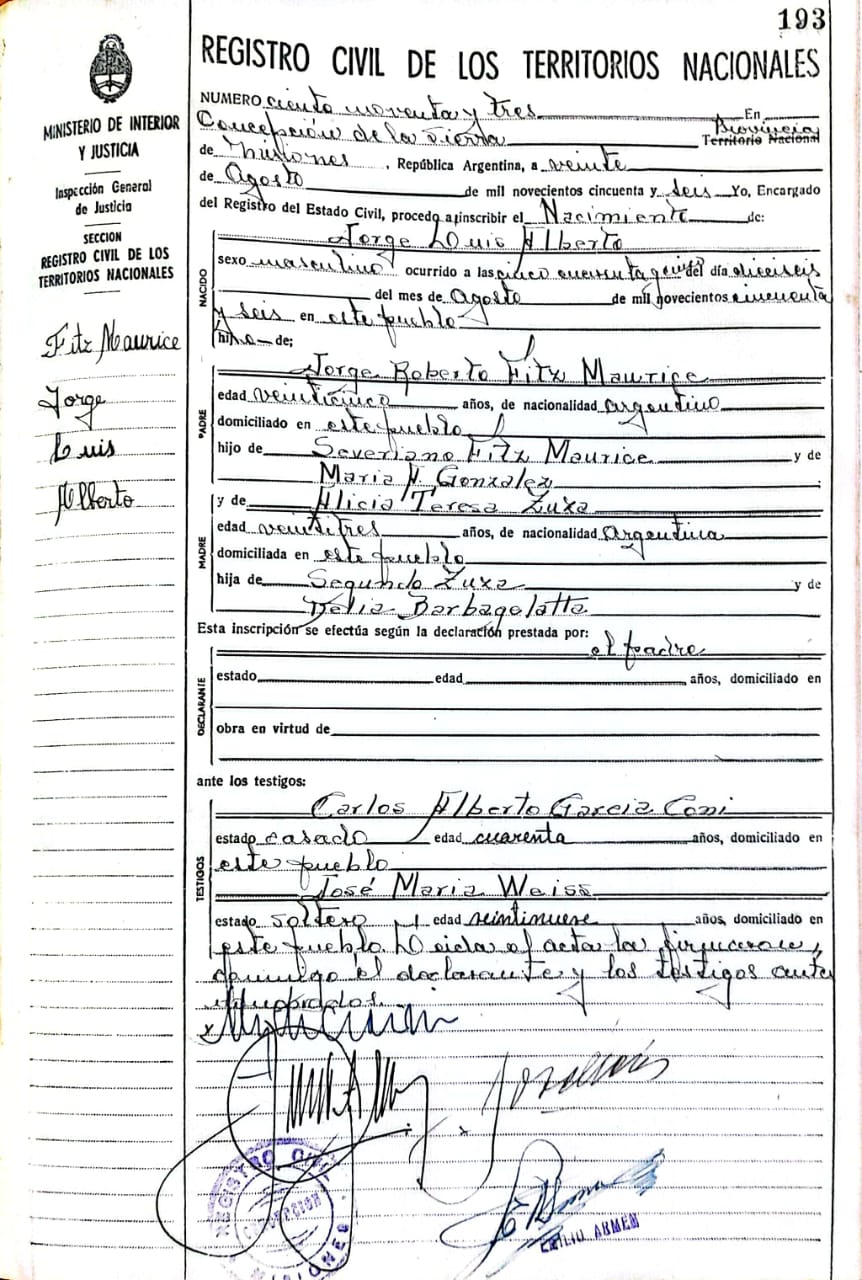 193
REGISTRO CIVIL DE LOS TERRITORIOS NACIONALES
MINISTERIO DE INTERIOR
Y JUSTICIA
Inspección General
de Justicia
SECCION
REGISTRO CIVIL DE LOS
TERRITORIOS NACIONALES
Fitz Maurice
Jorge
Luis
Alberto
NUMERO ciento noventa y tres En
Concepción de la Sierra Provincia
Territorio Nacional
de Misiones, República Argentina, a veinte
de Agosto de mil novecientos cincuenta y seis Yo, Encargado
del Registro del Estado Civil, procedo a inscribir el Nacimiento de:
NACIDO
Jorge Luis Alberto
sexo masculino ocurrido a las cinco cuarenta y del día dieciseis
del mes de Agosto de mil novecientos cincuenta
y seis en este pueblo
hijo de;
PADRE
Jorge Roberto Fitz Maurice
edad veinticinco años, de nacionalidad argentino
domiciliado en este pueblo
hijo de Severiano Fitz Maurice y de
Maria A. Gonzalez
MADRE
y de Alicia Teresa Zuza
edad veintitres años, de nacionalidad Argentina
domiciliada en este pueblo
hija de Segundo Zuza y de
Delia Barbagelatta
Esta inscripción se efectúa según la declaración prestada por:
el padre
DECLARANTE
estado edad años, domiciliado en
obra en virtud de
ante los testigos:
TESTIGOS
Carlos Alberto Garcia Coni
estado casado edad cuarenta años, domiciliado en
este pueblo
José Maria Weiss
estado soltero edad veintinueve años, domiciliado en
este pueblo. Leida el acta la firmaron,
conmigo el declarante y los testigos antes
REGISTRO CIVIL
CONCEPCION
MISIONES
EMILIO ARMEN